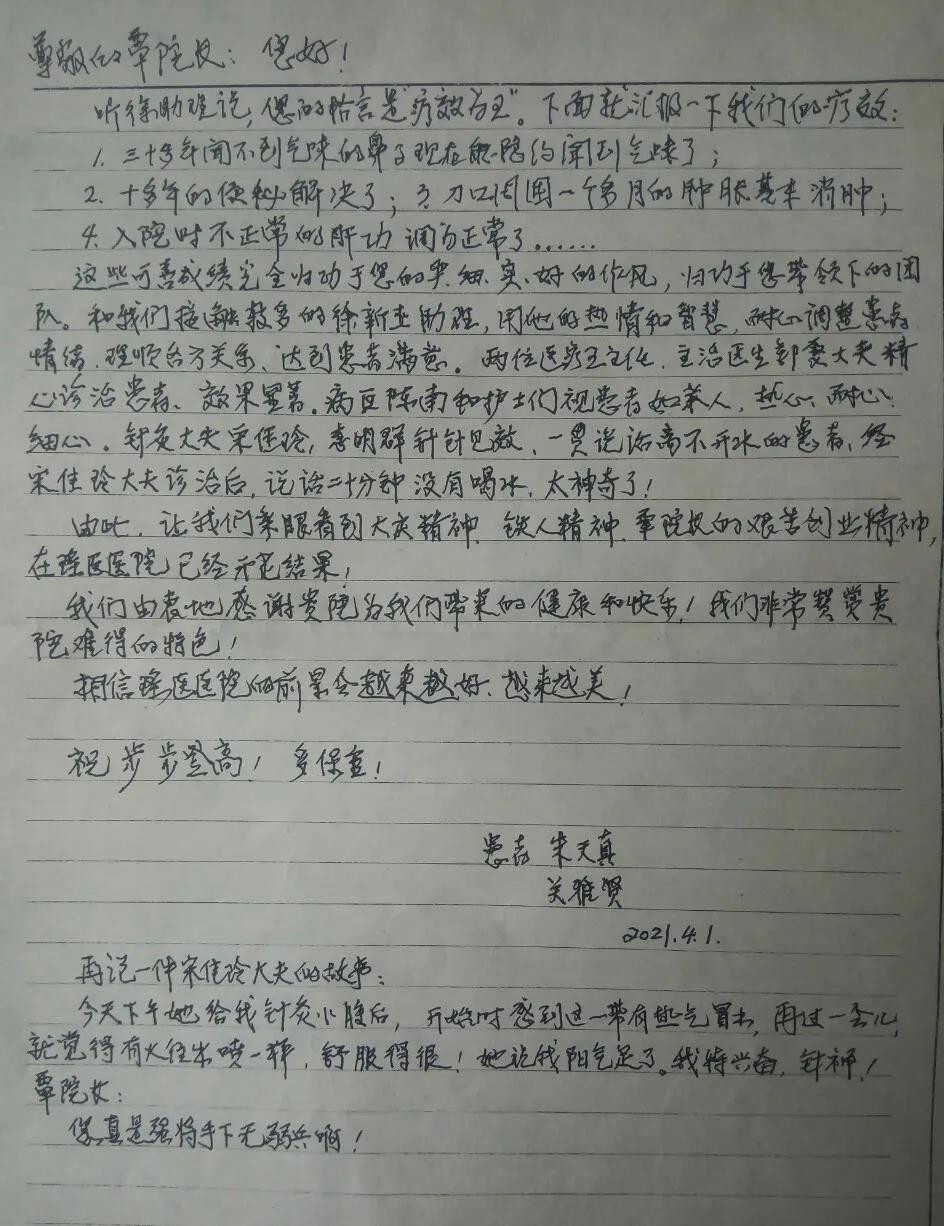 尊敬的覃院长：您好！
听徐助理说，您的格言是“疗效为王”。下面就汇报一下我们的疗效：
1. 三十多年闻不到气味的鼻子现在能隐约闻到气味了；
2. 十多年的便秘解决了；3. 刀口周围一个多月的肿胀基本消肿；
4. 入院时不正常的肝功调为正常了……
这些可喜成绩完全归功于您的严、细、实、好的作风，归功于您带领下的团
队。和我们接触较多的徐新亚助理，用他的热情和智慧，耐心调整患者
情绪、理顺各方关系、达到患者满意。两位医疗主任、主治医生邹勇大夫精
心诊治患者、效果显著。病区陈南和护士们视患者如亲人，热心、耐心、
细心。针灸大夫宋佳玲，李明群针针见效，一贯说话离不开水的患者，经
宋佳玲大夫诊治后，说话二十分钟没有喝水，太神奇了！
由此，让我们亲眼看到大庆精神、铁人精神、覃院长的艰苦创业精神，
在瑶医医院已经示范结果！
我们由衷地感谢贵院为我们带来的健康和快乐！我们非常赞赏贵
院难得的特色！
相信瑶医医院的前景会越来越好、越来越美！
祝步步登高！多保重！
患者 朱天真
关雅贤
2021.4.1.
再说一件宋佳玲大夫的故事：
今天下午她给我针灸小腹后，开始时感到这一带有热气冒出，再过一会儿，
就觉得有火往出喷一样，舒服得很！她说我阳气足了。我特兴奋，针神！
覃院长：
您真是强将手下无弱兵啊！